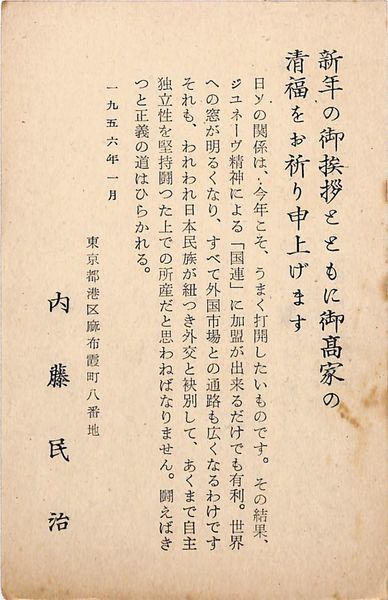 新年の御挨拶とともに御髙家の
清福をお祈り申上げます
日ソの関係は、今年こそ、うまく打開したいものです。その結果、
ジユネーヴ精神による「国連」に加盟が出来るだけでも有利。世界
への窓が明るくなり、すべて外国市場との通路も広くなるわけです
それも、われわれ日本民族が紐つき外交と袂別して、あくまで自主
独立性を堅持闘つた上での所産だと思わねばなりません。闘えばき
つと正義の道はひらかれる。
一九五六年一月
東京都港区麻布霞町八番地
内藤民治